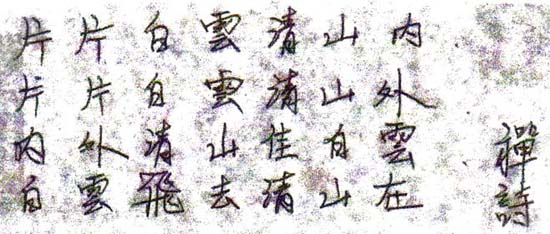 片片白雲清山内
片片白雲清山外
内外清山佳白雲
白雲飛去清山在
禪詩